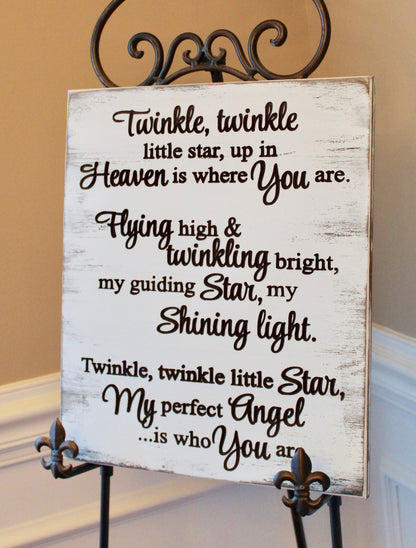 Twinkle, twinkle
little star, up in
Heaven is where You are.
Flying high &
twinkling bright,
my guiding Star, my
Shining light.
Twinkle, twinkle little Star,
My perfect Angel
...is who You ar